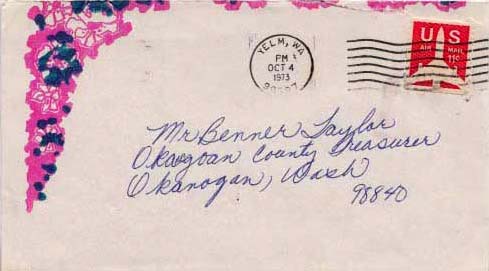 YELM, WA
PM
OCT 4
1973
US
AIR MAIL
11¢
Mr Benner Taylor
Okanogan County Treasurer
Okanogan, Wash
98840